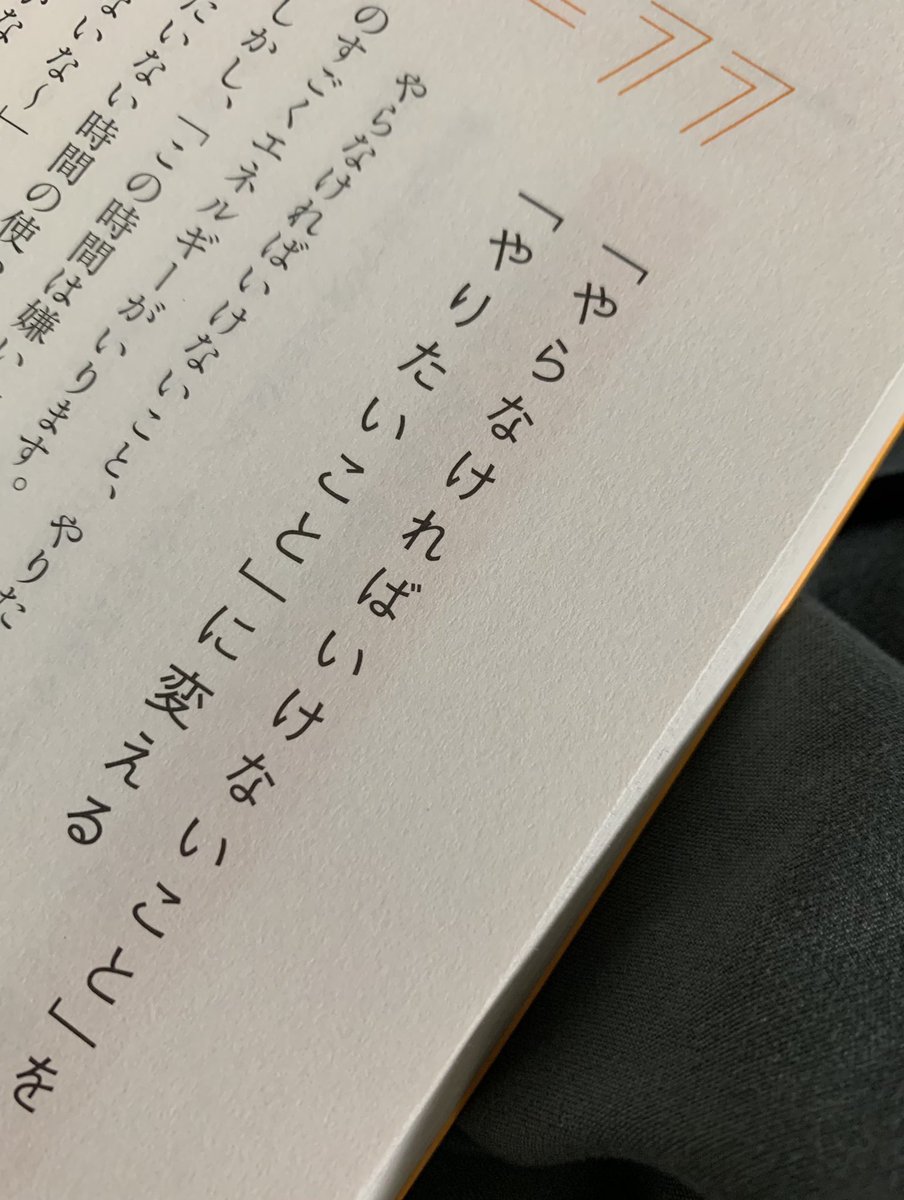 77
「やらなければいけないこと」を
「やりたいこと」に変える
やらなければいけないこと、やりた
のすごくエネルギーがいります。
しかし、「この時間は嫌い
いない時間の使
いな〜」